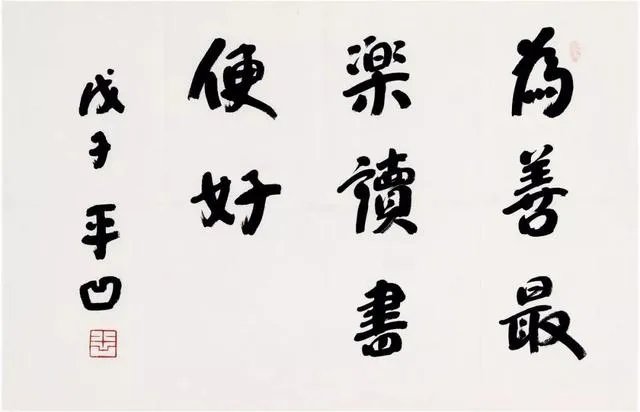 為善最
楽讀書
便好
戊子 平凹